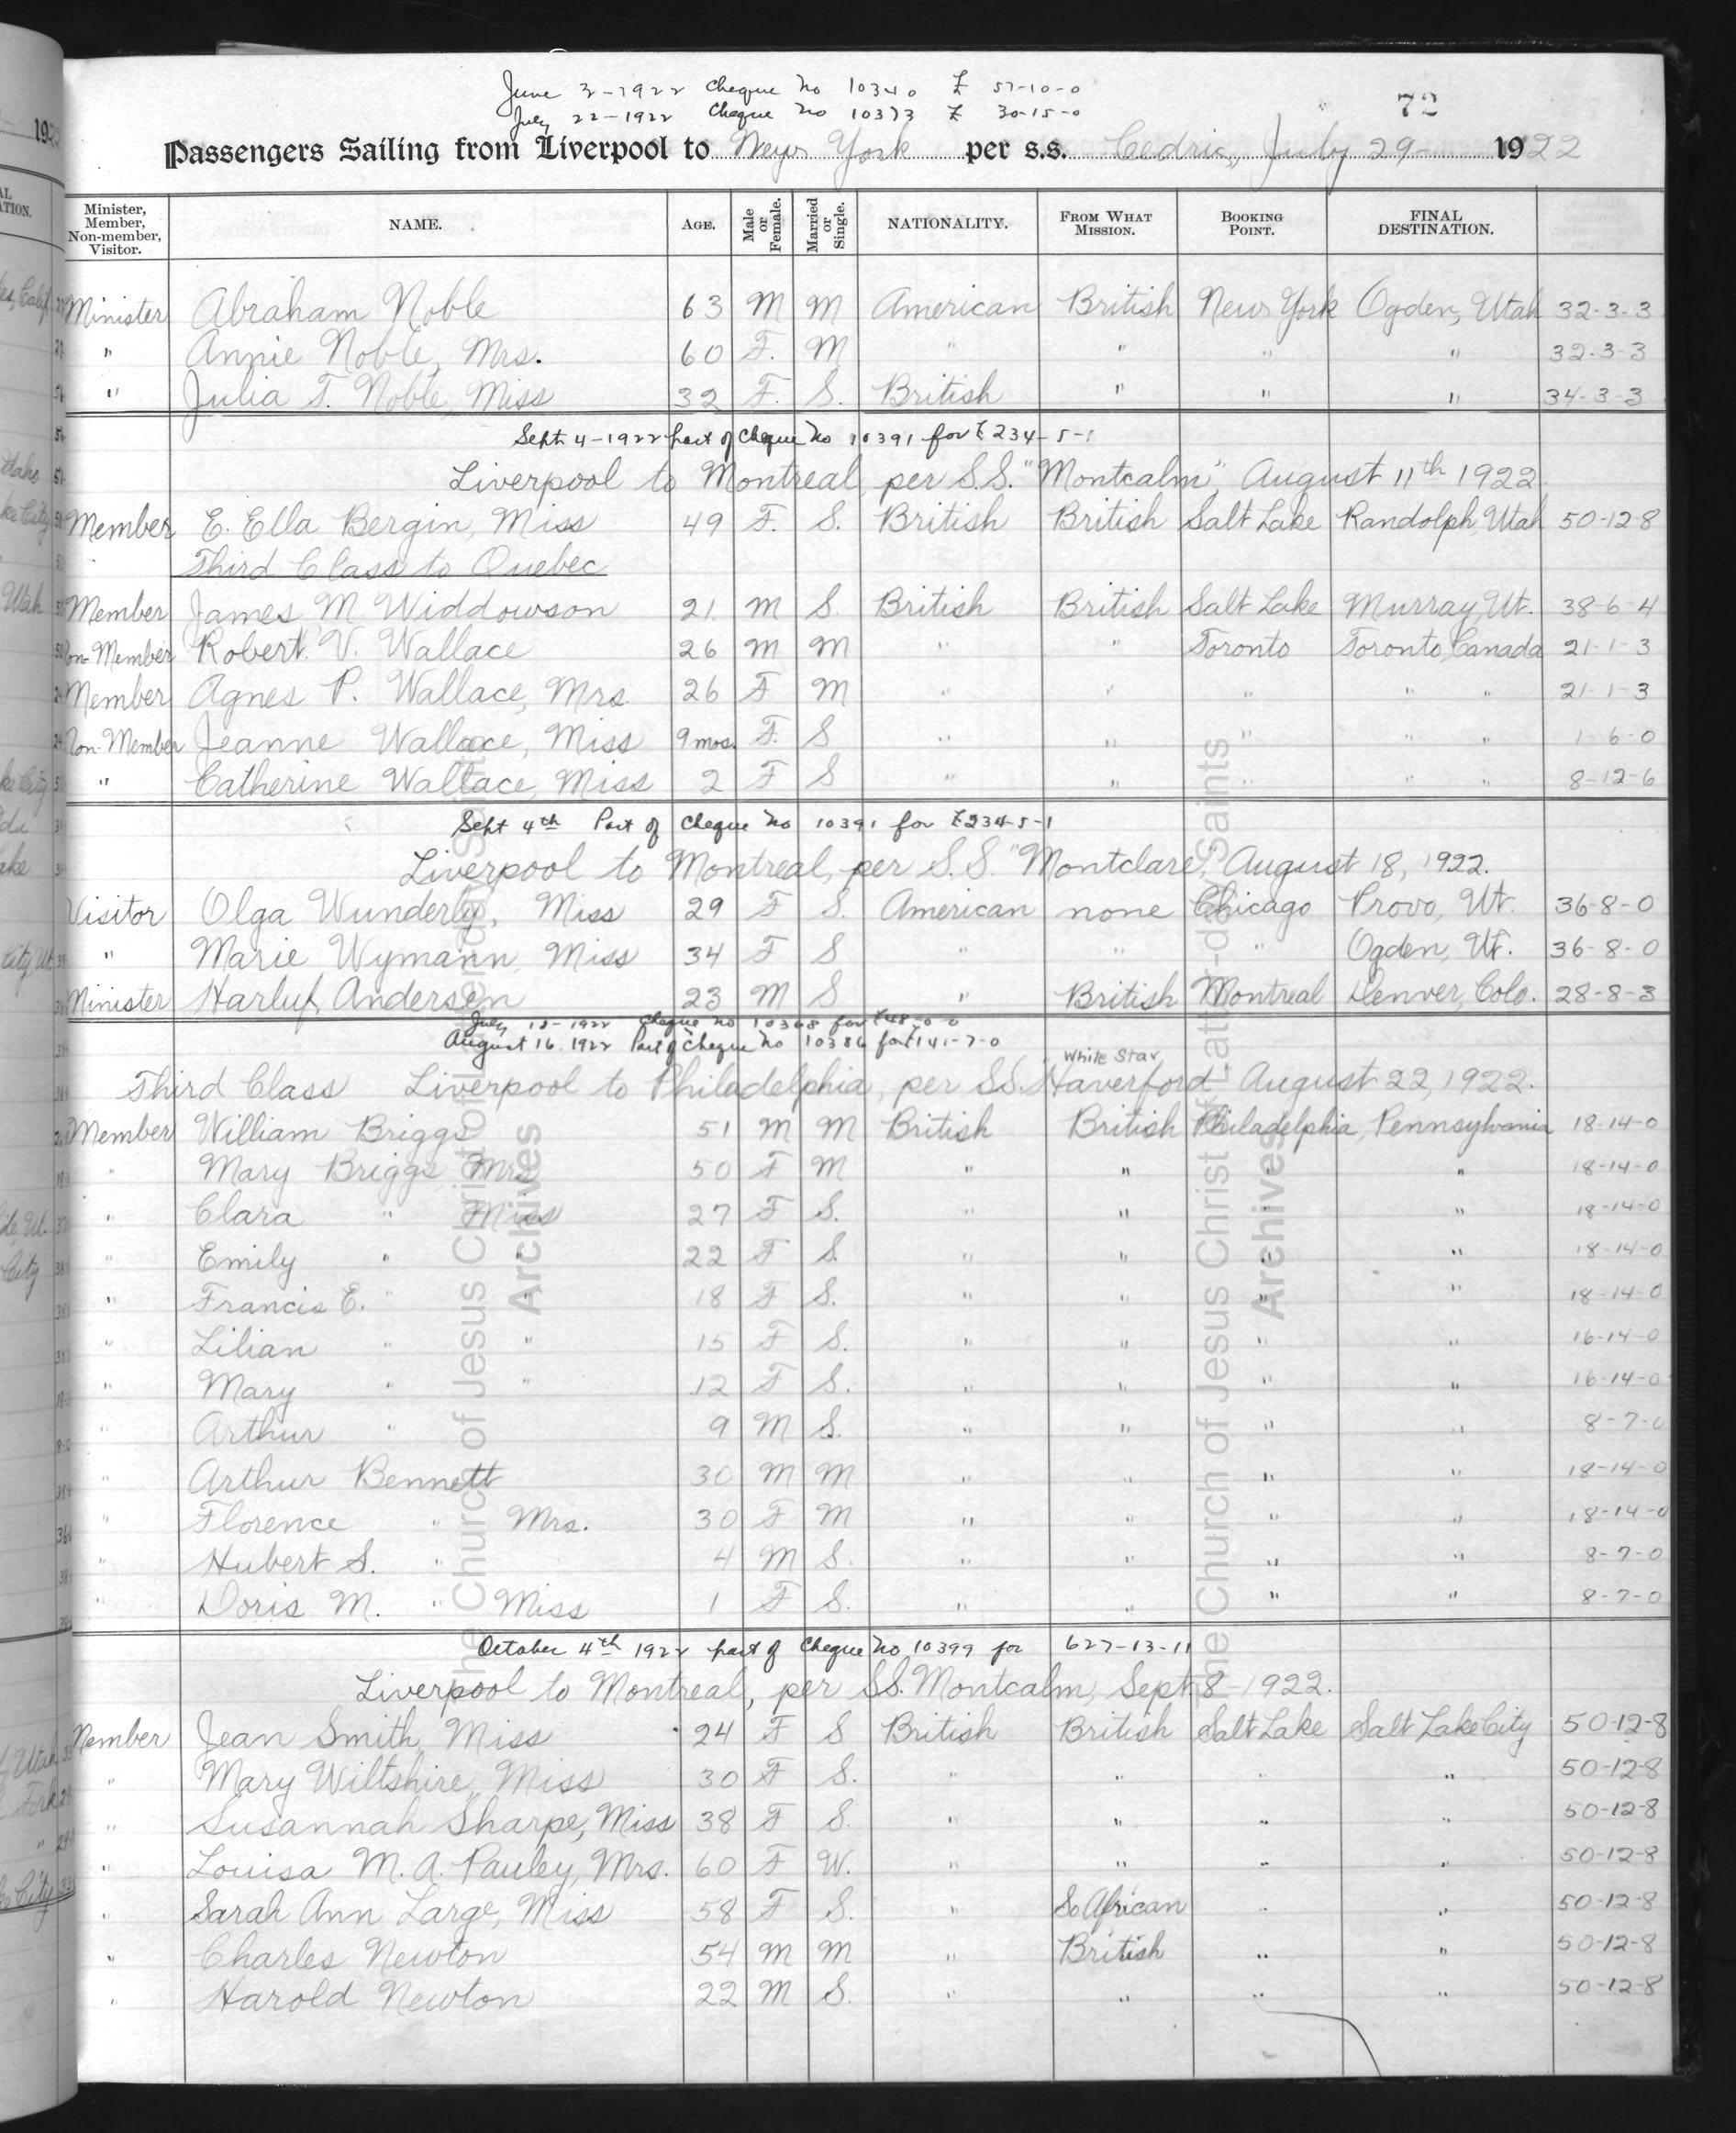 June 2-1922 Cheque No 10340 £ 57-10-0
July 22-1922 Cheque No 10373 £ 30-15-0
72
Passengers Sailing from Liverpool to New York per s.s. Cedric, July 29 1922
Minister, Member, Non-member, Visitor. NAME. AGE. Male or Female. Married or Single. NATIONALITY. FROM WHAT MISSION. BOOKING POINT. FINAL DESTINATION.
Minister Abraham Noble 63 M M American British New York Ogden, Utah 32-3-3
" Annie Noble, Mrs. 60 F. M " " " " 32-3-3
" Julia T. Noble, Miss 32 F. S. British " " " 34-3-3
Sept 4-1922 part of Cheque No 10391 for £234-5-1
Liverpool to Montreal, per S.S. "Montcalm", August 11th 1922
Member E. Ella Bergin, Miss 49 F. S. British British Salt Lake Randolph, Utah 50-12-8
Third Class to Quebec
Member James M Widdowson 21. M S. British British Salt Lake Murray, Ut. 38-6-4
Non-Member Robert V. Wallace 26 M M " " Toronto Toronto, Canada 21-1-3
Member Agnes P. Wallace, Mrs. 26 F M " " " " " 21-1-3
Non-Member Jeanne Wallace, Miss 9 mos. F. S " " " " " 1-6-0
" Catherine Wallace, Miss 2 F S " " " " " 8-12-6
Sept 4th Part of Cheque No 10391 for £234-5-1
Liverpool to Montreal, per S.S. "Montclare", August 18, 1922.
Visitor Olga Wunderly, Miss 29 F S. American none Chicago Provo, Ut. 36-8-0
" Marie Wymann, Miss 34 F S " " " Ogden, Ut. 36-8-0
Minister Harluf Andersen 23 M S " British Montreal Denver, Colo. 28-8-3
July 18-1922 Cheque No 10368 for £48-0-0
August 16. 1922 Part of Cheque No 10386 for £141-7-0
White Star
Third Class Liverpool to Philadelphia, per SS. Haverford August 22, 1922.
Member William Briggs 51 M M British British Philadelphia, Pennsylvania 18-14-0
" Mary Briggs Mrs 50 F M " " " 18-14-0
" Clara " Miss 27 F S. " " " 18-14-0
" Emily " " 22 F S. " " " " 18-14-0
" Francis E. " 18 F S. " " " " 18-14-0
" Lilian " " 15 F S. " " " " 16-14-0
" Mary " " 12 F S. " " " " 16-14-0
" Arthur " 9 M S. " " " " 8-7-0
" Arthur Bennett 30 M M " " " " 18-14-0
" Florence " Mrs. 30 F M " " " " 18-14-0
" Hubert S. " 4 M S. " " " " 8-7-0
" Doris M. " Miss 1 F S. " " " " 8-7-0
October 4th 1922 part of Cheque No 10399 for 627-13-11
Liverpool to Montreal, per SS. Montcalm, Sept 8-1922.
Member Jean Smith, Miss 24 F S British British Salt Lake Salt Lake City 50-12-8
" Mary Wiltshire, Miss 30 F S. " " " " 50-12-8
" Susannah Sharpe, Miss 38 F S. " " " " 50-12-8
" Louisa M. A. Pauley, Mrs. 60 F W. " " " " 50-12-8
" Sarah Ann Large, Miss 58 F S. " So African " " 50-12-8
" Charles Newton 54 M M " British " " 50-12-8
" Harold Newton 22 M S. " " " " 50-12-8
The Church of Jesus Christ of Latter-day Saints
Archives
The Church of Jesus Christ of Latter-day Saints
Archives